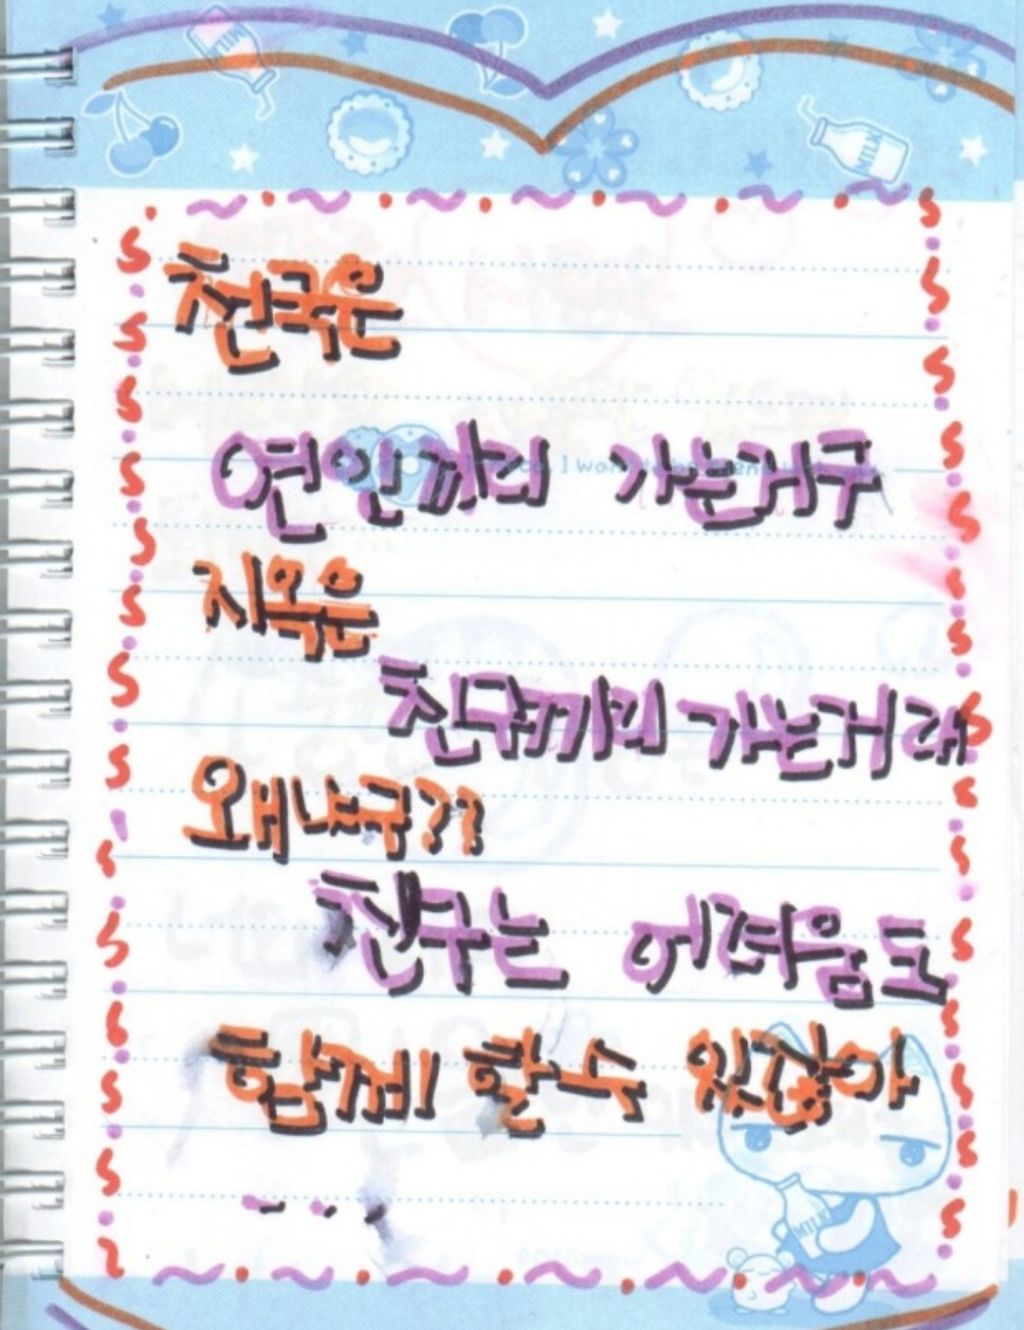 천국은
연인끼리 가는거구
지옥은
친구끼리 가는거래
왜냐구??
친구는 어려움도
함께 할수 있잖아
...
MILK
MILK
MILK